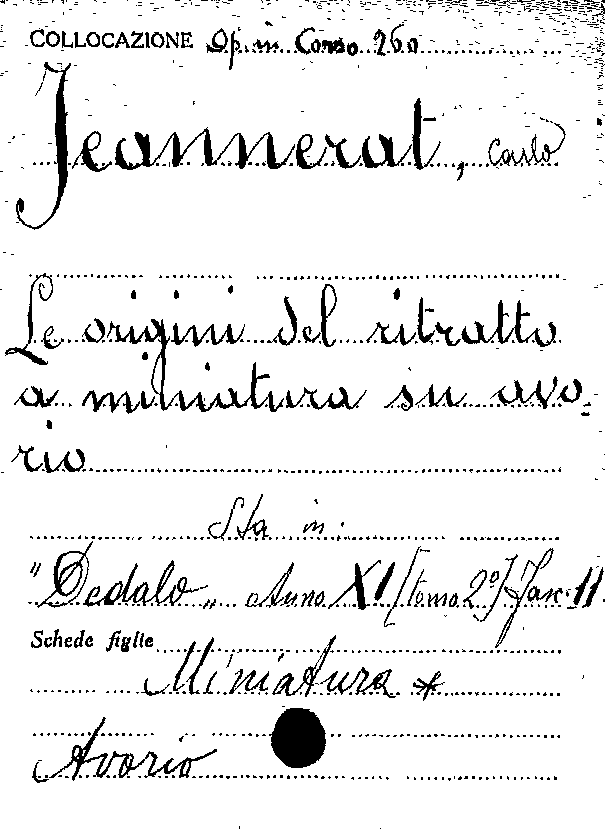 COLLOCAZIONE Op. in Corso 260
Jeannerat, Carlo
Le origini del ritratto
a miniatura su avo-
rio
Sta in:
"Dedalo" Anno XI [tomo 2º] Fasc. 11
Schede figlie
Miniatura *
Avorio